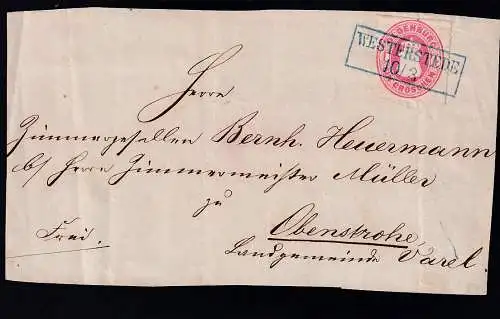 OLDENBURG
WESTERSTEDE
10/3
GROSCHEN
Herrn
Zimmergesellen Bernh. Heuermann
b/ Herrn Zimmermeister Müller
zu
Frei.
Obenstrohe,
Landgemeinde Varel.